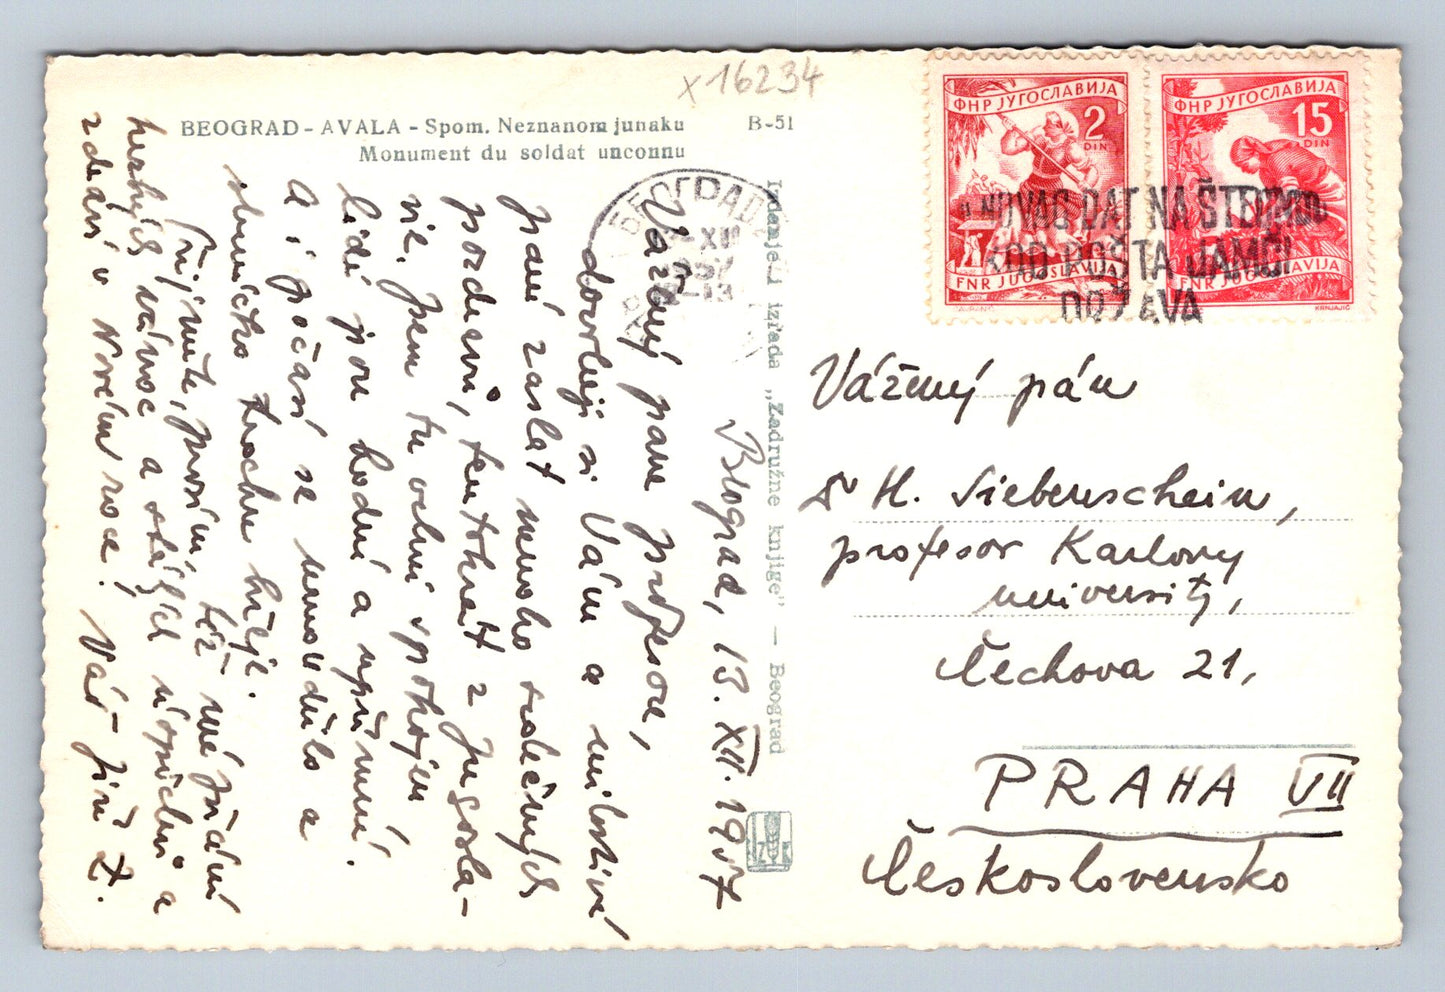 x16234
BEOGRAD - AVALA - Spom. Neznanom junaku B-51
Monument du soldat unconnu
Beograd, 13. XII. 1957
Vážený pane profesore,
dovoluji si Vám a milostivé
paní zaslat mnoho srdečných
pozdravů, tentokrát z Jugosla-
vie. Jsem tu velmi spokojen
lidé jsou hodní a upřímní.
A i počasí se umoudřilo a
sluníčko trochu hřeje.
Přijměte, prosím, též mé přání
hezkých vánoc a stálých úspěchů a
zdraví v Novém roce! Váš Jiří Z.
Izdanje i izrada „Zadružne knjige" — Beograd
ZK
BEOGRAD
XII
957
-13
ФНР ЈУГОСЛАВИЈА
2
DIN
FNR JUGOSLAVIJA
ФНР ЈУГОСЛАВИЈА
15
DIN
FNR JUGOSLAVIJA
KRNJAJIC
NOVAC DAT NA ŠTEDNJU
KOD POŠTA JAMČI
DRŽAVA
Vážený pán
Dr H. Siebenschein,
profesor Karlovy
university,
Čechova 21,
PRAHA VII
Československo